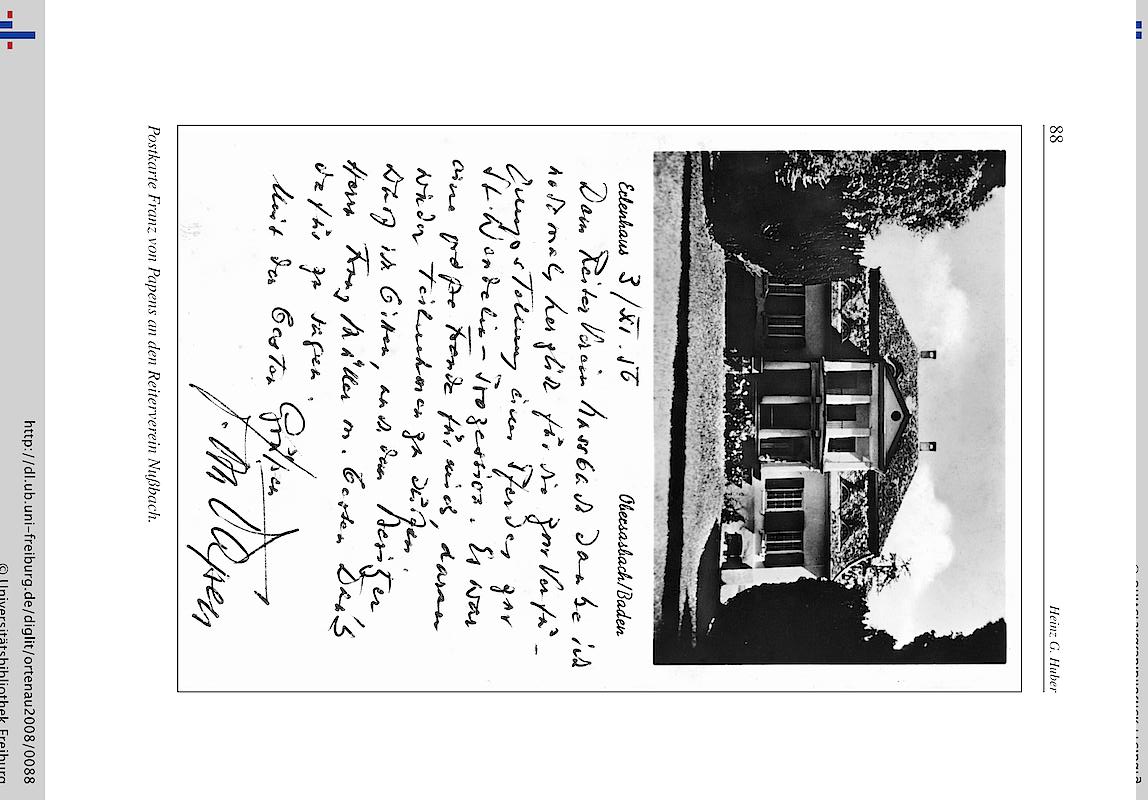 88
Heinz G. Huber
Erlenhaus 3/XI.56 Obersasbach/Baden
Dem Reiterverein Nussbach danke ich
nochmals herzlich für die zur Verfü-
gungstellung eines Pferdes zur
St. Wendelin-Prozession. Es war
eine große Freude für mich, daran
wieder teilnehmen zu dürfen.
Darf ich bitten, auch dem Besitzer
Herrn Franz Müller m. besten Dank
dafür zu sagen.
Mit den besten Grüßen
Papen
Postkarte Franz von Papens an den Reiterverein Nußbach.
http://dl.ub.uni-freiburg.de/diglit/ortenau2008/0088
© Universitätsbibliothek Freiburg